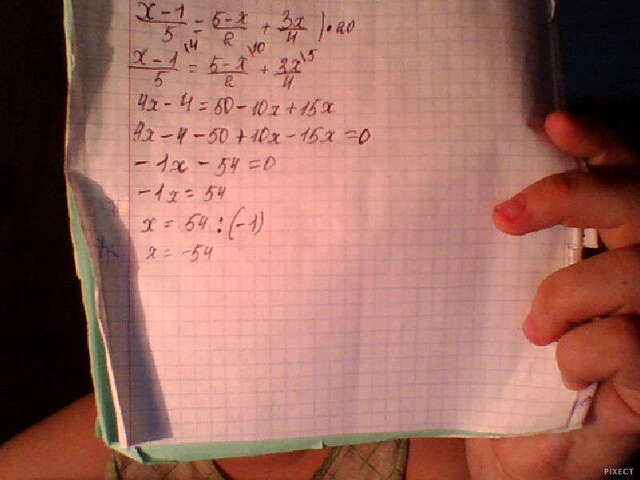 x-1/5 = 5-x/2 + 3x/4 )·20
x-1\4/5 = 5-x\10/2 + 3x\5/4
4x-4=50-10x+15x
4x-4-50+10x-15x=0
-1x-54=0
-1x=54
x=54:(-1)
x=-54
PIXECT